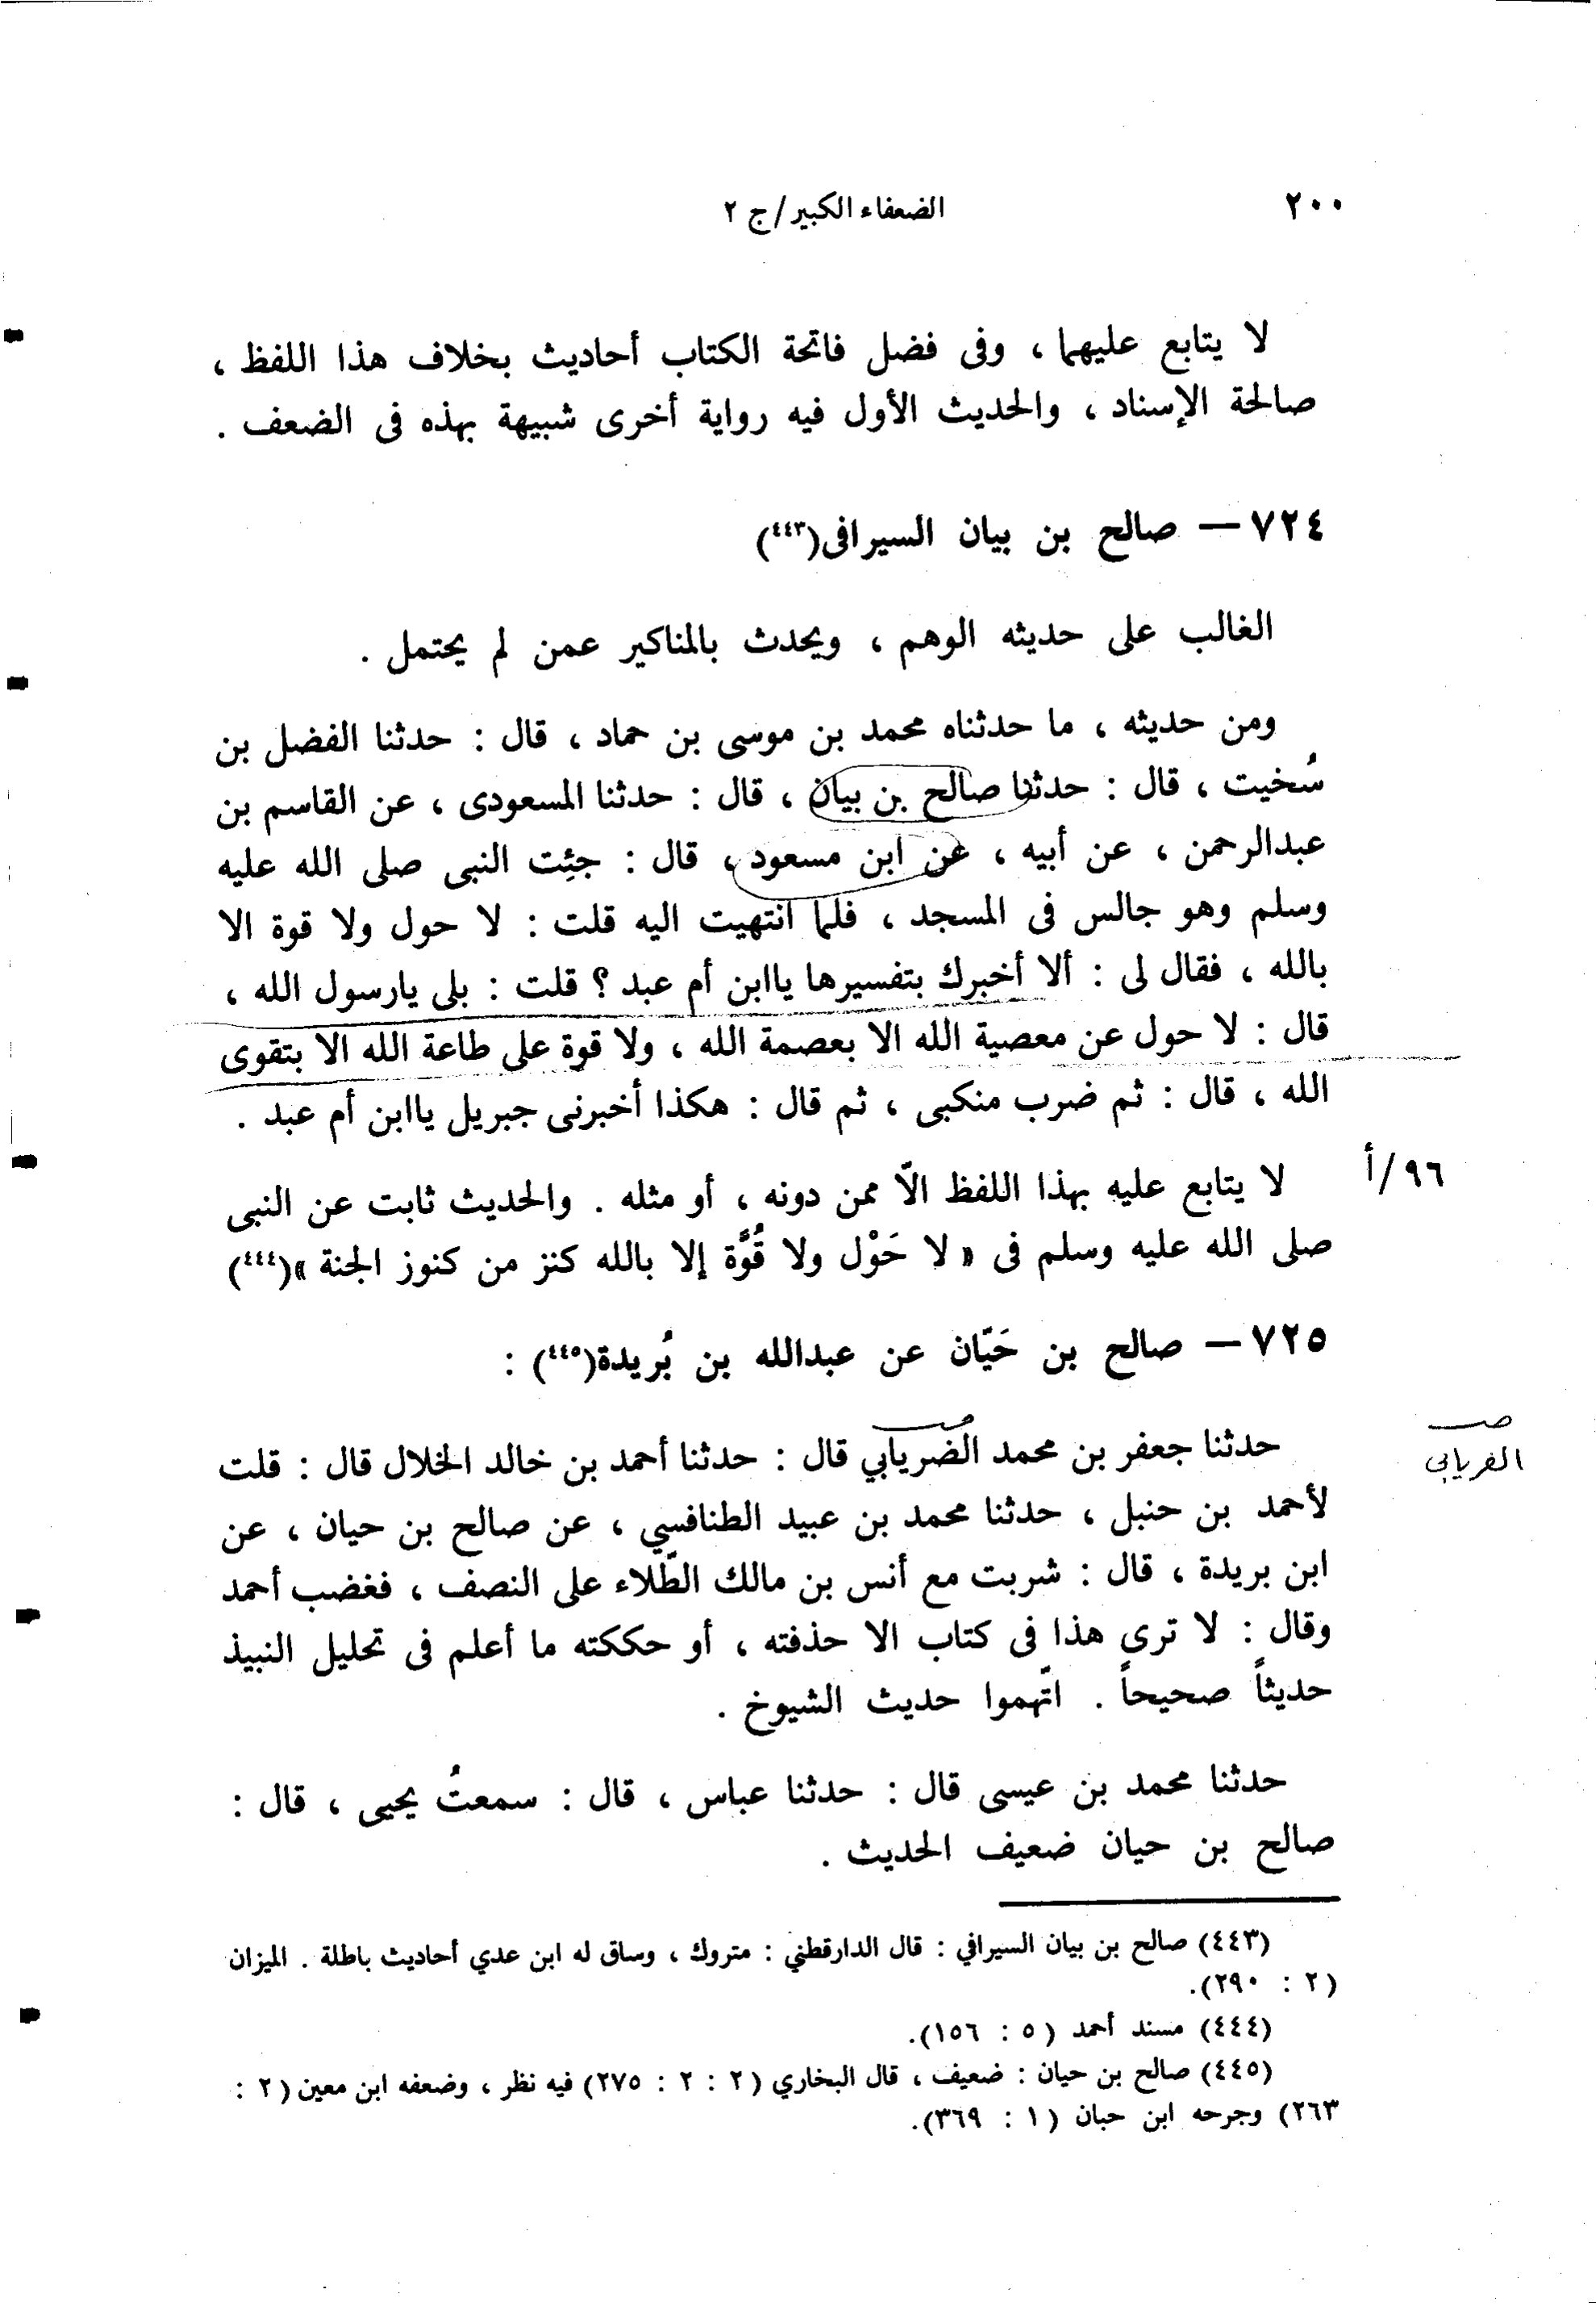 ٢٠٠
الضعفاء الكبير/ج ٢
لا يتابع عليهما ، وفى فضل فاتحة الكتاب أحاديث بخلاف هذا اللفظ ،
صالحة الإسناد ، والحديث الأول فيه رواية أخرى شبيهة بهذه فى الضعف .
٧٢٤ — صالح بن بيان السيرافى(٤٤٣)
الغالب على حديثه الوهم ، ويحدث بالمناكير عمن لم يحتمل .
ومن حديثه ، ما حدثناه محمد بن موسى بن حماد ، قال : حدثنا الفضل بن
سُخيت ، قال : حدثنا صالح بن بيان ، قال : حدثنا المسعودى ، عن القاسم بن
عبدالرحمن ، عن أبيه ، عن ابن مسعود ، قال : جئِت النبى صلى الله عليه
وسلم وهو جالس فى المسجد ، فلما انتهيت اليه قلت : لا حول ولا قوة الا
بالله ، فقال لى : ألا أخبرك بتفسيرها ياابن أم عبد ؟ قلت : بلى يارسول الله ،
قال : لا حول عن معصية الله الا بعصمة الله ، ولا قوة على طاعة الله الا بتقوى
الله ، قال : ثم ضرب منكبى ، ثم قال : هكذا أخبرنى جبريل ياابن أم عبد .
٩٦/أ
لا يتابع عليه بهذا اللفظ الاّ ممن دونه ، أو مثله . والحديث ثابت عن النبى
صلى الله عليه وسلم فى « لا حَوْل ولا قُوَّة إلا بالله كنز من كنوز الجنة »(٤٤٤)
٧٢٥ — صالح بن حَيّان عن عبدالله بن بُريدة(٤٤٥) :
حدثنا جعفر بن محمد الضريابي قال : حدثنا أحمد بن خالد الخلال قال : قلت
صـ
الفريابي
لأحمد بن حنبل ، حدثنا محمد بن عبيد الطنافسي ، عن صالح بن حيان ، عن
ابن بريدة ، قال : شربت مع أنس بن مالك الطّلاء على النصف ، فغضب أحمد
وقال : لا ترى هذا فى كتاب الا حذفته ، أو حككته ما أعلم فى تحليل النبيذ
حديثاً صحيحاً . اتّهموا حديث الشيوخ .
حدثنا محمد بن عيسى قال : حدثنا عباس ، قال : سمعتُ يحيى ، قال :
صالح بن حيان ضعيف الحديث .
(٤٤٣) صالح بن بيان السيرافي : قال الدارقطني : متروك ، وساق له ابن عدي أحاديث باطلة . الميزان
(٢ : ٢٩٠).
(٤٤٤) مسند أحمد (٥ : ١٥٦).
(٤٤٥) صالح بن حيان : ضعيف ، قال البخاري (٢ : ٢ : ٢٧٥) فيه نظر ، وضعفه ابن معين (٢ :
٢٦٣) وجرحه ابن حبان (١ : ٣٦٩).